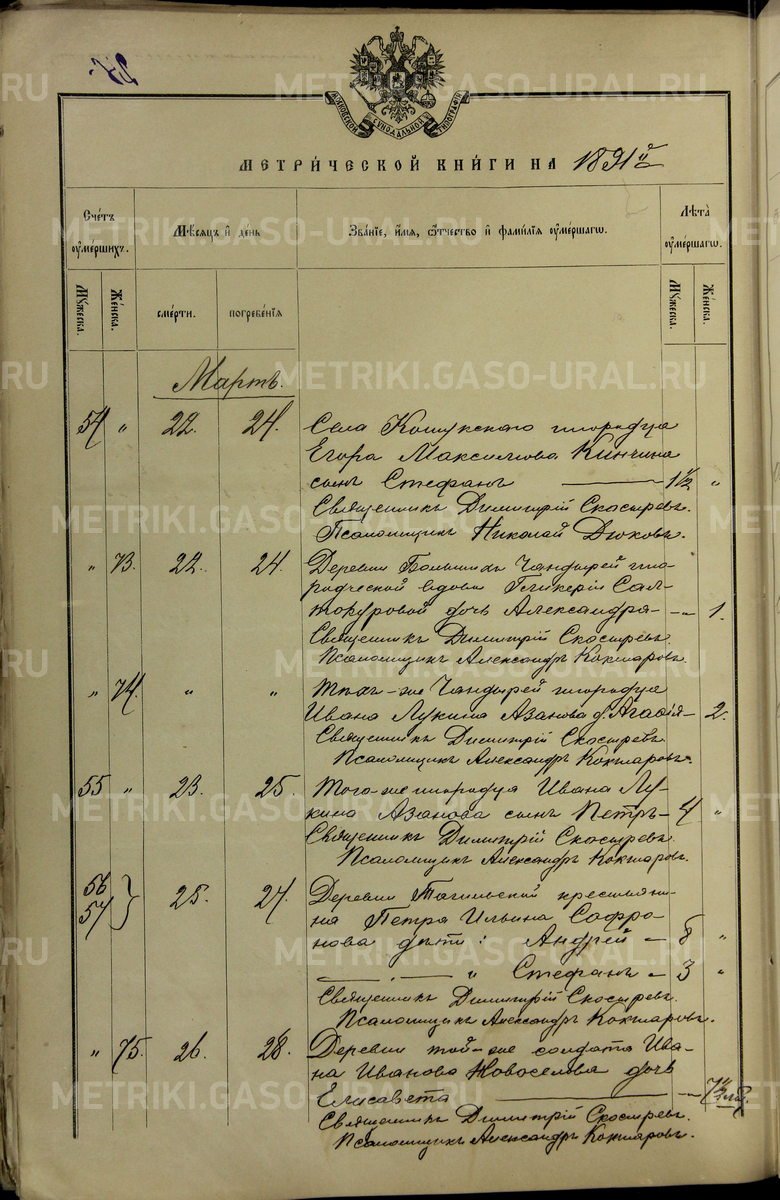 МОСКОВСКОЙ СѴНОДАЛЬНОЙ ТИПОГРАФІИ
МЕТРИ́ЧЕСКОЙ КНИ́ГИ НА 1891 й
Сче́тъ оуме́ршихъ.
Мѣ́сяцъ и҆ де́нь
Зва́нїе, и҆́мѧ, ѻ҆́тчество и҆ фами́лїѧ оуме́ршагѡ.
Лѣ́та оуме́ршагѡ.
Мꙋ́жеска. Же́нска. сме́рти. погребе́нїѧ Мꙋ́жеска. Же́нска.
Мартъ.
54 " 22. 24. Села Кошукскаго инородца
Егора Максимова Кинчина
сынъ Стефанъ — 1½ "
Священникъ Димитрій Скосыревъ.
Псаломщикъ Николай Дюковъ.
" 73. 22. 24. Деревни Большихъ Чандырей ино-
родческой вдовы Гликеріи Сал-
токуровой дочь Александра - - 1.
Священникъ Димитрій Скосыревъ.
Псаломщикъ Александръ Кокшаровъ.
" 74. " " Тѣхъ-же Чандырей инородца
Ивана Лукина Азанова д. Агафія - 2.
Священникъ Димитрій Скосыревъ.
Псаломщикъ Александръ Кокшаровъ.
55 " 23. 25. Того-же инородца Ивана Лу-
кина Азанова сынъ Петръ - 4 "
Священникъ Димитрій Скосыревъ.
Псаломщикъ Александръ Кокшаровъ.
56
57 } 25. 27. Деревни Тагильской крестьяни-
на Петра Ильина Софро-
нова дѣти: Андрей - 6 "
— . — " Стефанъ - 3 "
Священникъ Димитрій Скосыревъ.
Псаломщикъ Александръ Кокшаровъ.
" 75. 26. 28. Деревни той-же солдата Ива-
на Иванова Новоселова дочь
Елисавета —
Священникъ Димитрій Скосыревъ.
Псаломщикъ Александръ Кокшаровъ.
METRIKI.GASO-URAL.RU